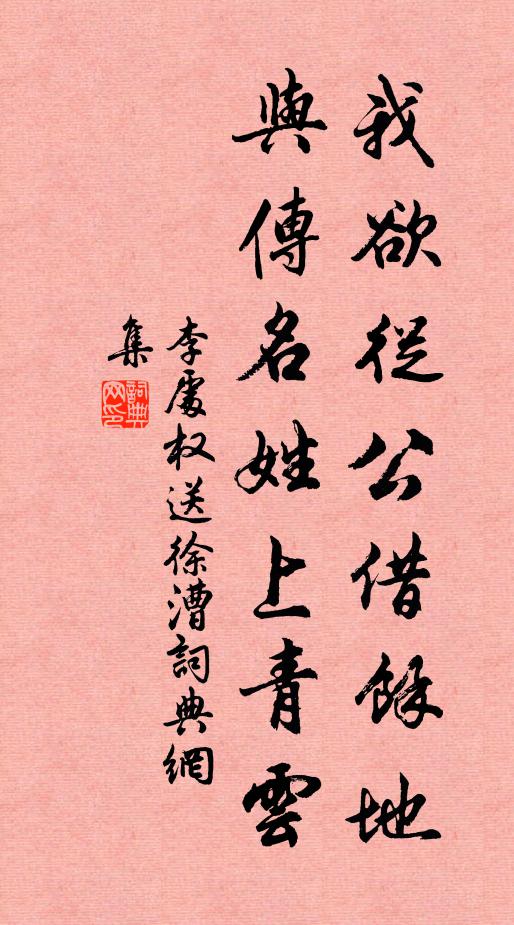 我欲從公借餘地
與傳名姓上青雲
李處权送徐漕詞典網
集
詞典網印